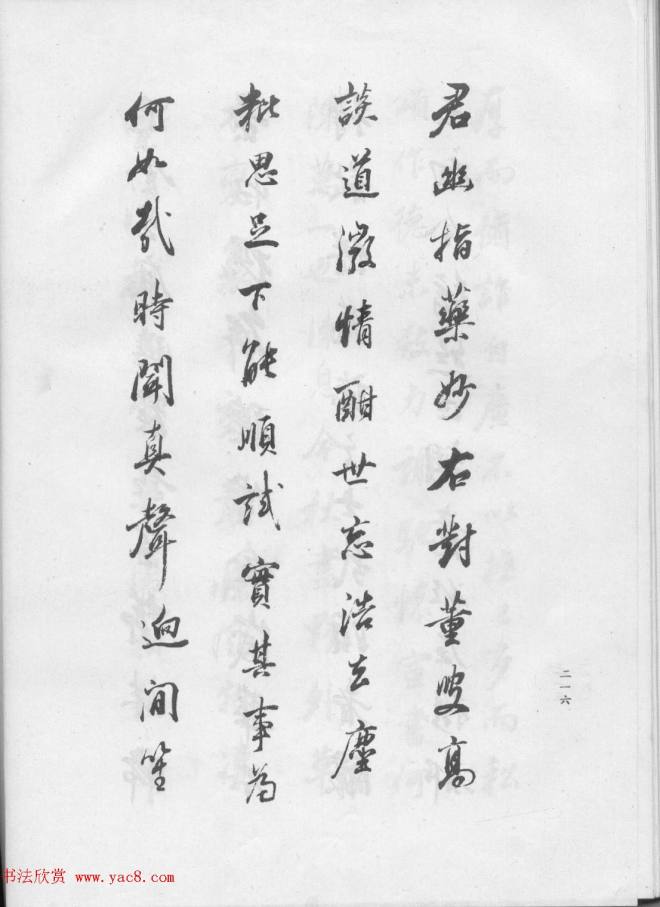 君幽指藥妙右對董叟高
談道澂情酣世忘浩去塵
粃思足下能順試實其事為
何如哉時聞真聲迎間坐
二一六
书法欣赏 www.yac8.com